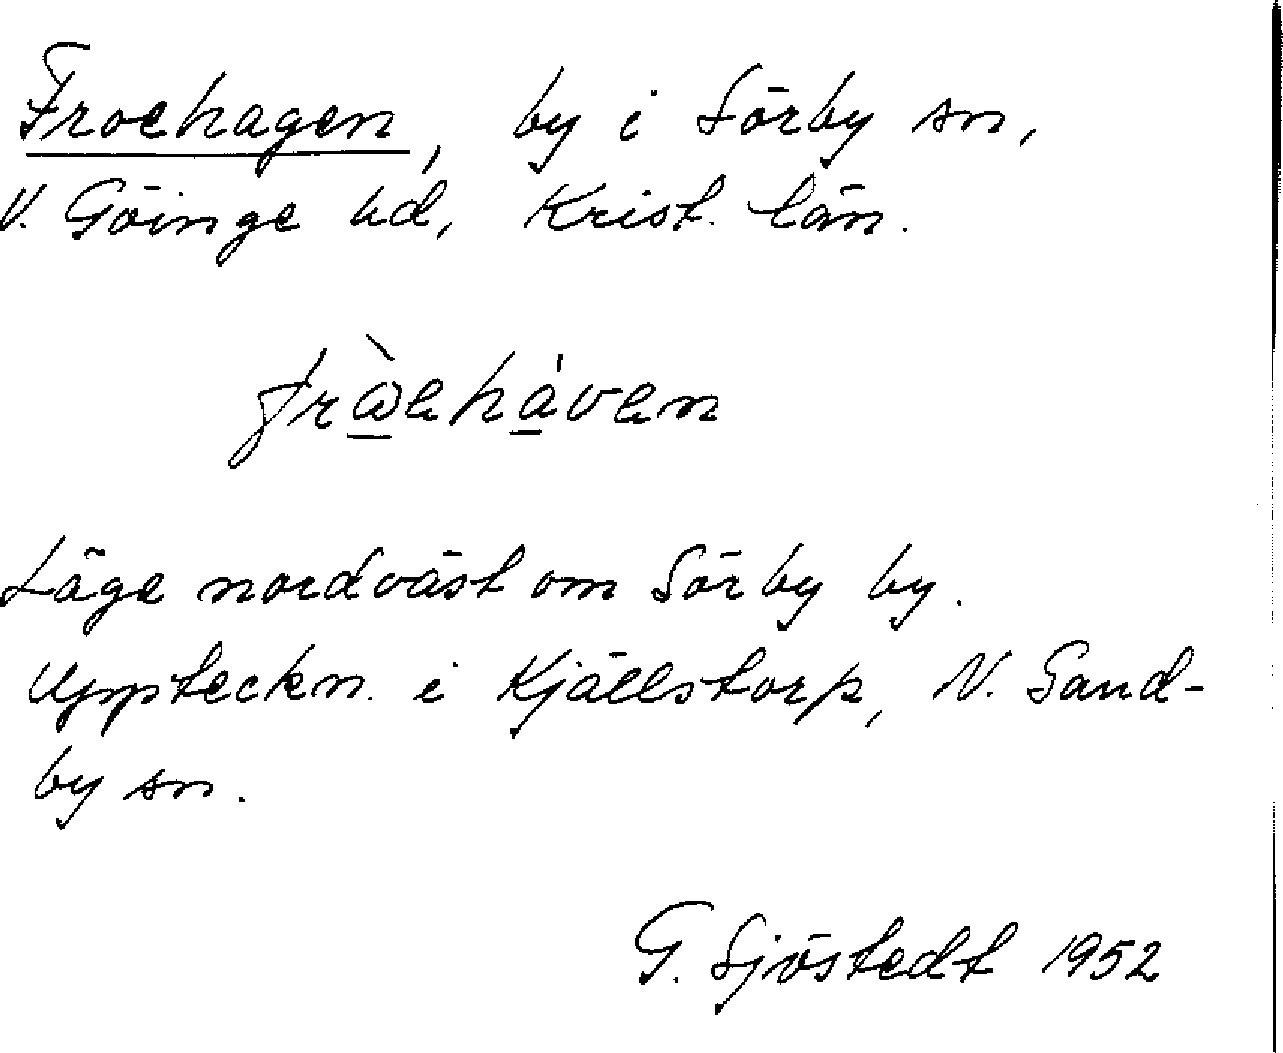 Froehagen, by i Sörby sn,
V. Göinge hd, Krist. län.
Läge nordväst om Sörby by.
Uppteckn. i Kjällstorp, N. Sand-
by sn.
G. Sjöstedt 1952